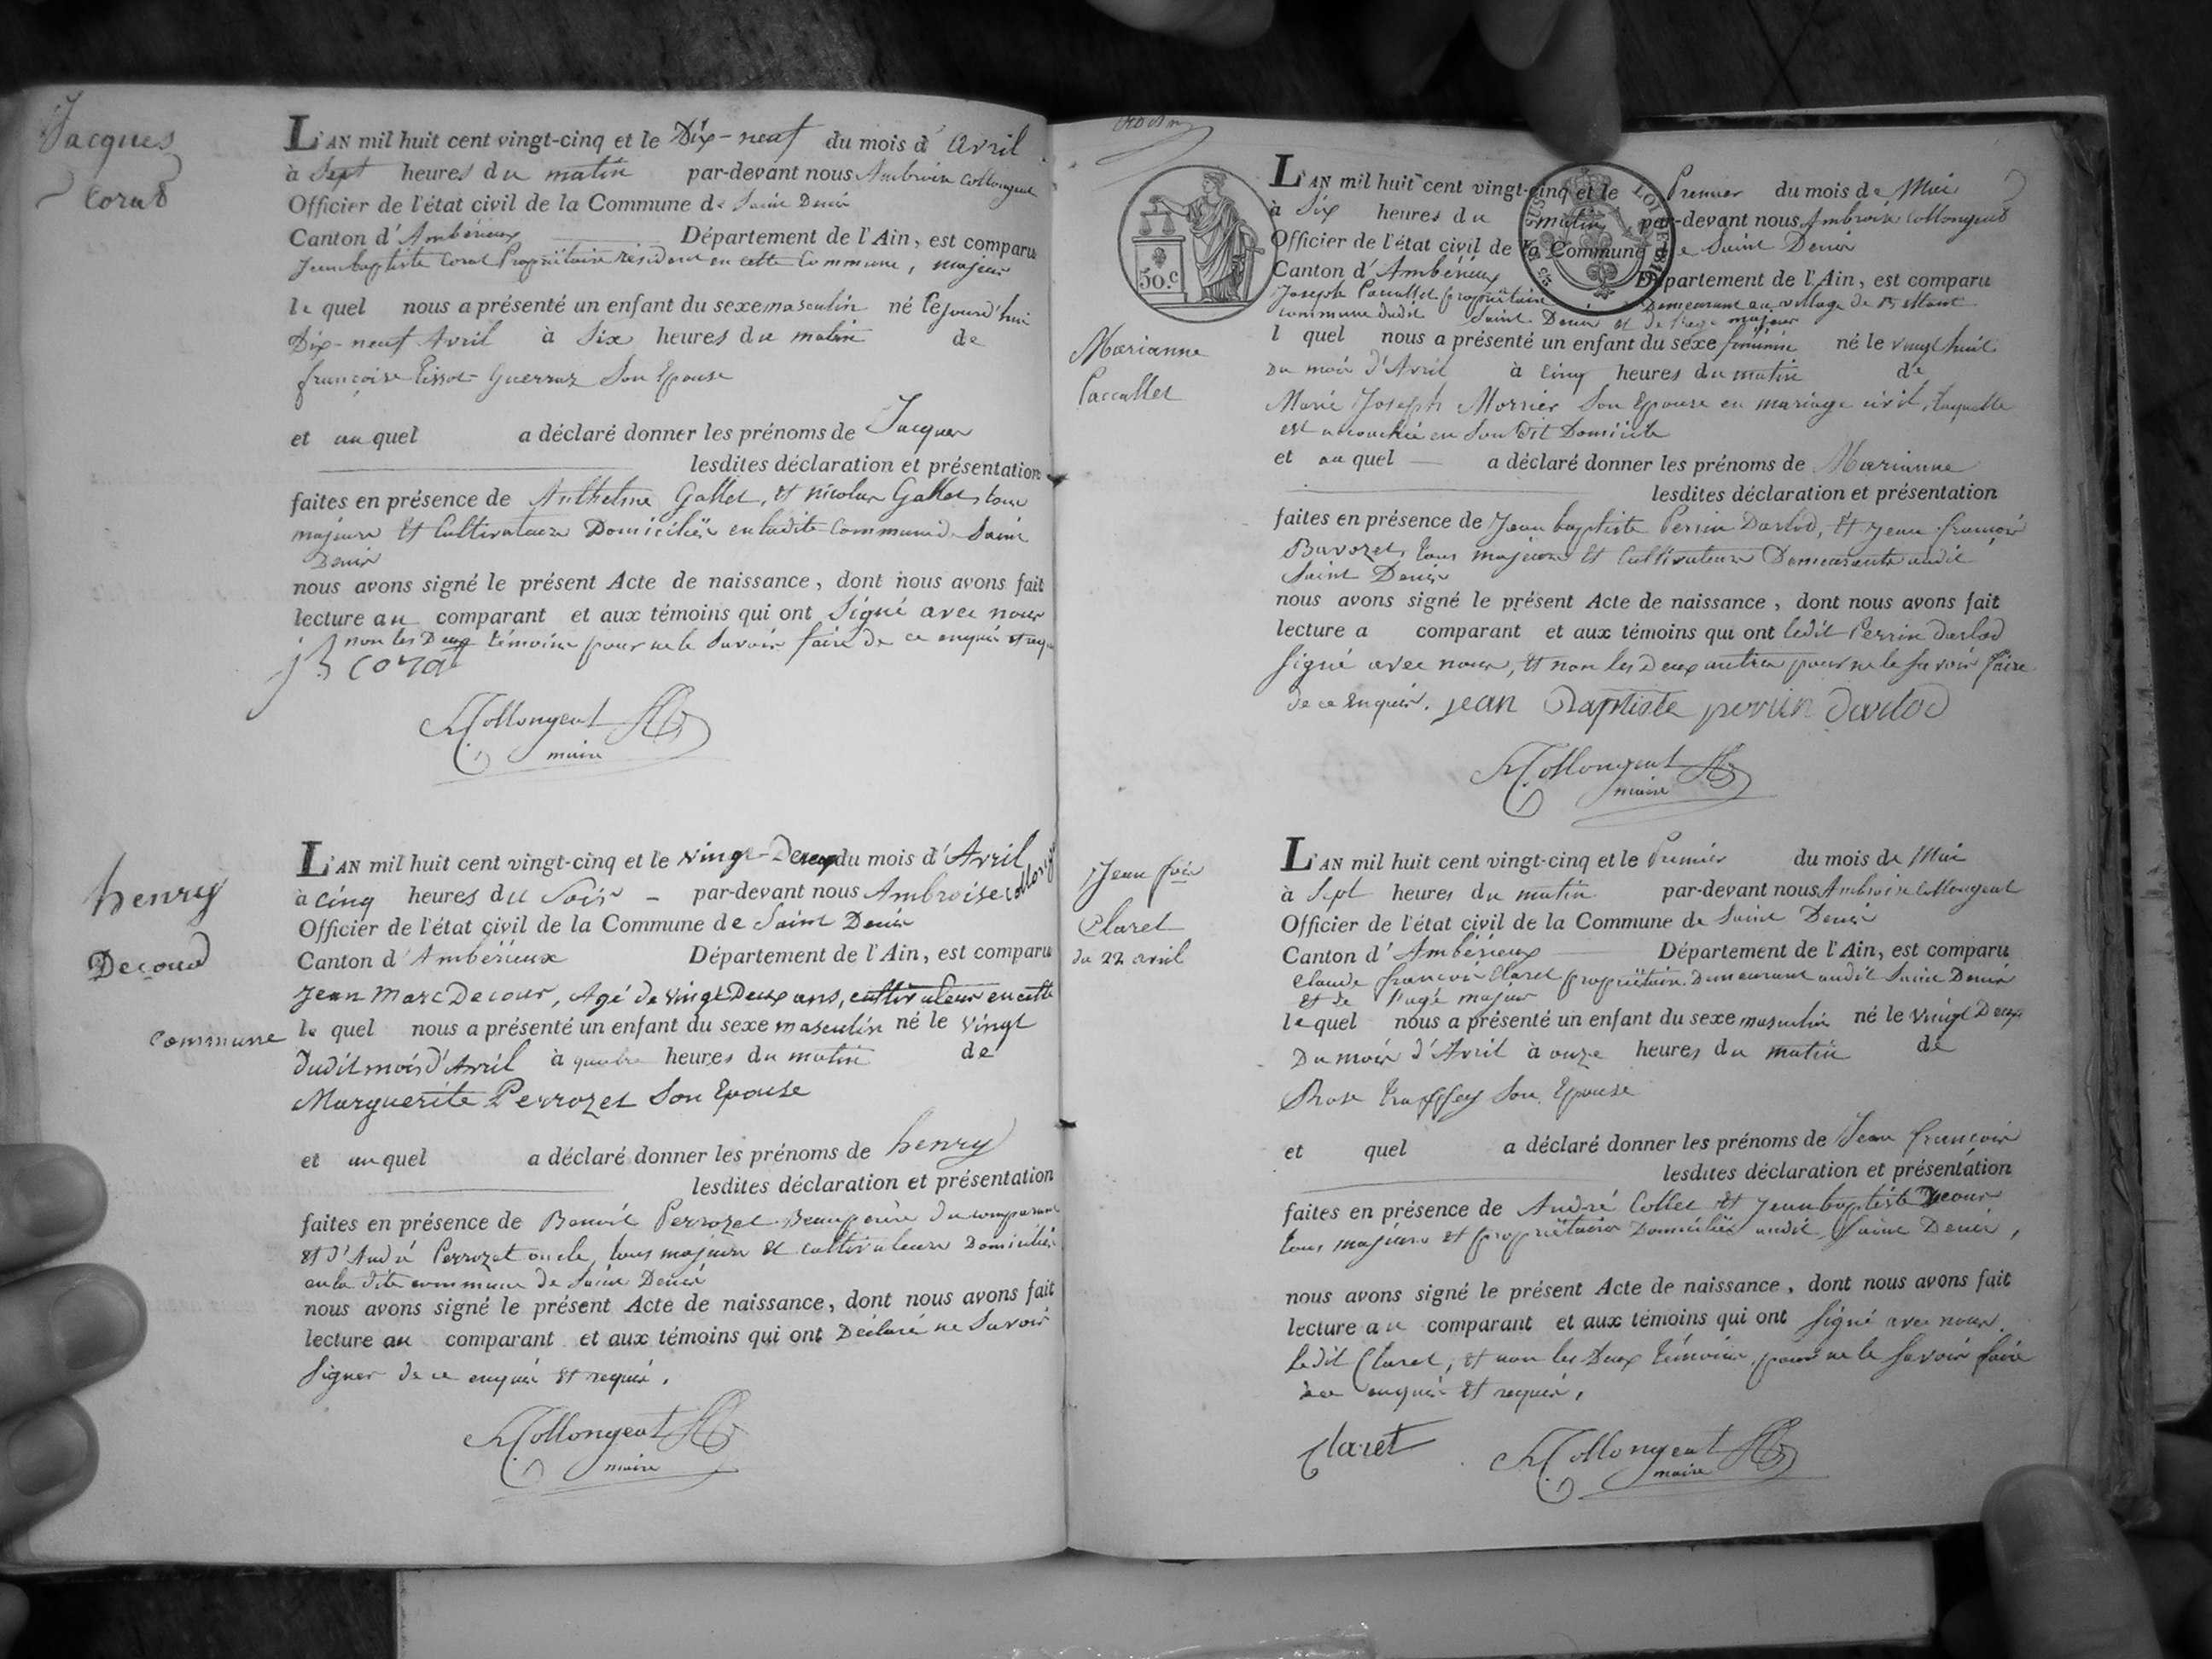 Jacques
Corat
L'AN mil huit cent vingt-cinq et le Dix-neuf du mois d'Avril
à Sept heures du matin par-devant nous Ambroise Collongeat
Officier de l'état civil de la Commune de Saint Denis
Canton d'Ambérieux Département de l'Ain, est comparu
Jeanbaptiste Corat Propriétaire résident en cette Commune, majeur
le quel nous a présenté un enfant du sexe masculin né le jourd'hui
Dix-neuf Avril à Six heures du matin de
françoise Tissot-Guerraz Son Epouse
et au quel a déclaré donner les prénoms de Jacques
lesdites déclaration et présentation
faites en présence de Anthelme Gallet, et Nicolas Gallet tous
majeurs et Cultivateurs Domiciliés en ladite Commune de Saint
Denis
nous avons signé le présent Acte de naissance, dont nous avons fait
lecture au comparant et aux témoins qui ont Signé avec nous
non les Deux témoins pour ne le Savoir faire de ce enquis et requis
j B Corat
Collongeat
maire
henry
Decour
L'AN mil huit cent vingt-cinq et le vingt-Deux du mois d'Avril
à Cinq heures du Soir - par-devant nous Ambroise Collongeat
Officier de l'état civil de la Commune de Saint Denis
Canton d'Ambérieux Département de l'Ain, est comparu
Jean Marc Decour, Agé de vingt Deux ans, cultivateur en cette
Commune le quel nous a présenté un enfant du sexe masculin né le vingt
dudit mois d'Avril à quatre heures du matin de
Marguerite Perrozet Son Epouse
et au quel a déclaré donner les prénoms de henry
lesdites déclaration et présentation
faites en présence de Benoit Perrozet Beaupère du comparant
et d'André Perrozet oncle, tous majeurs et cultivateurs Domiciliés
en la dite commune de Saint Denis
nous avons signé le présent Acte de naissance, dont nous avons fait
lecture au comparant et aux témoins qui ont Déclaré ne Savoir
Signer de ce enquis et requis.
Collongeat
maire
50.c
Marianne
Paccallet
L'AN mil huit cent vingt-cinq et le Premier du mois de Mai
à Six heures du matin par-devant nous Ambroise Collongeat
Officier de l'état civil de la Commune de Saint Denis
Canton d'Ambérieux Département de l'Ain, est comparu
Joseph Paccallet propriétaire Demeurant au village de
commune dudit Saint Denis et de l'age majeur
l quel nous a présenté un enfant du sexe féminin né le vingt huit
Du mois d'Avril à Cinq heures du matin de
Marie Joseph Mornier Son Epouse en mariage civil, laquelle
est accouchée en Son dit Domicile
et au quel a déclaré donner les prénoms de Marianne
lesdites déclaration et présentation
faites en présence de Jean baptiste Perrin Darlod, et Jean françois
Bavozet, tous majeurs et Cultivateurs Demeurants audit
Saint Denis
nous avons signé le présent Acte de naissance, dont nous avons fait
lecture a comparant et aux témoins qui ont ledit Perrin darlod
Signé avec nous, et non les Deux autres pour ne le Savoir faire
de ce Enquis. jean Baptiste perrin darlod
Collongeat
maire
Jean fois
Claret
du 22 avril
L'AN mil huit cent vingt-cinq et le Premier du mois de Mai
à Sept heures du matin par-devant nous Ambroise Collongeat
Officier de l'état civil de la Commune de Saint Denis
Canton d'Ambérieux Département de l'Ain, est comparu
Claude françois Claret propriétaire Demeurant audit Saint Denis
et de l'agé majeur
le quel nous a présenté un enfant du sexe masculin né le vingt Deux
Du mois d'Avril à onze heures du matin de
Rose Son Epouse
et quel a déclaré donner les prénoms de Jean françois
lesdites déclaration et présentation
faites en présence de André Collet et Jean baptiste Decour
tous majeurs et propriétaires Domiciliés audit Saint Denis,
nous avons signé le présent Acte de naissance, dont nous avons fait
lecture au comparant et aux témoins qui ont Signé avec nous
ledit Claret, et non les Deux témoins pour ne le Savoir faire
de ce enquis et requis,
Claret
Collongeat
maire